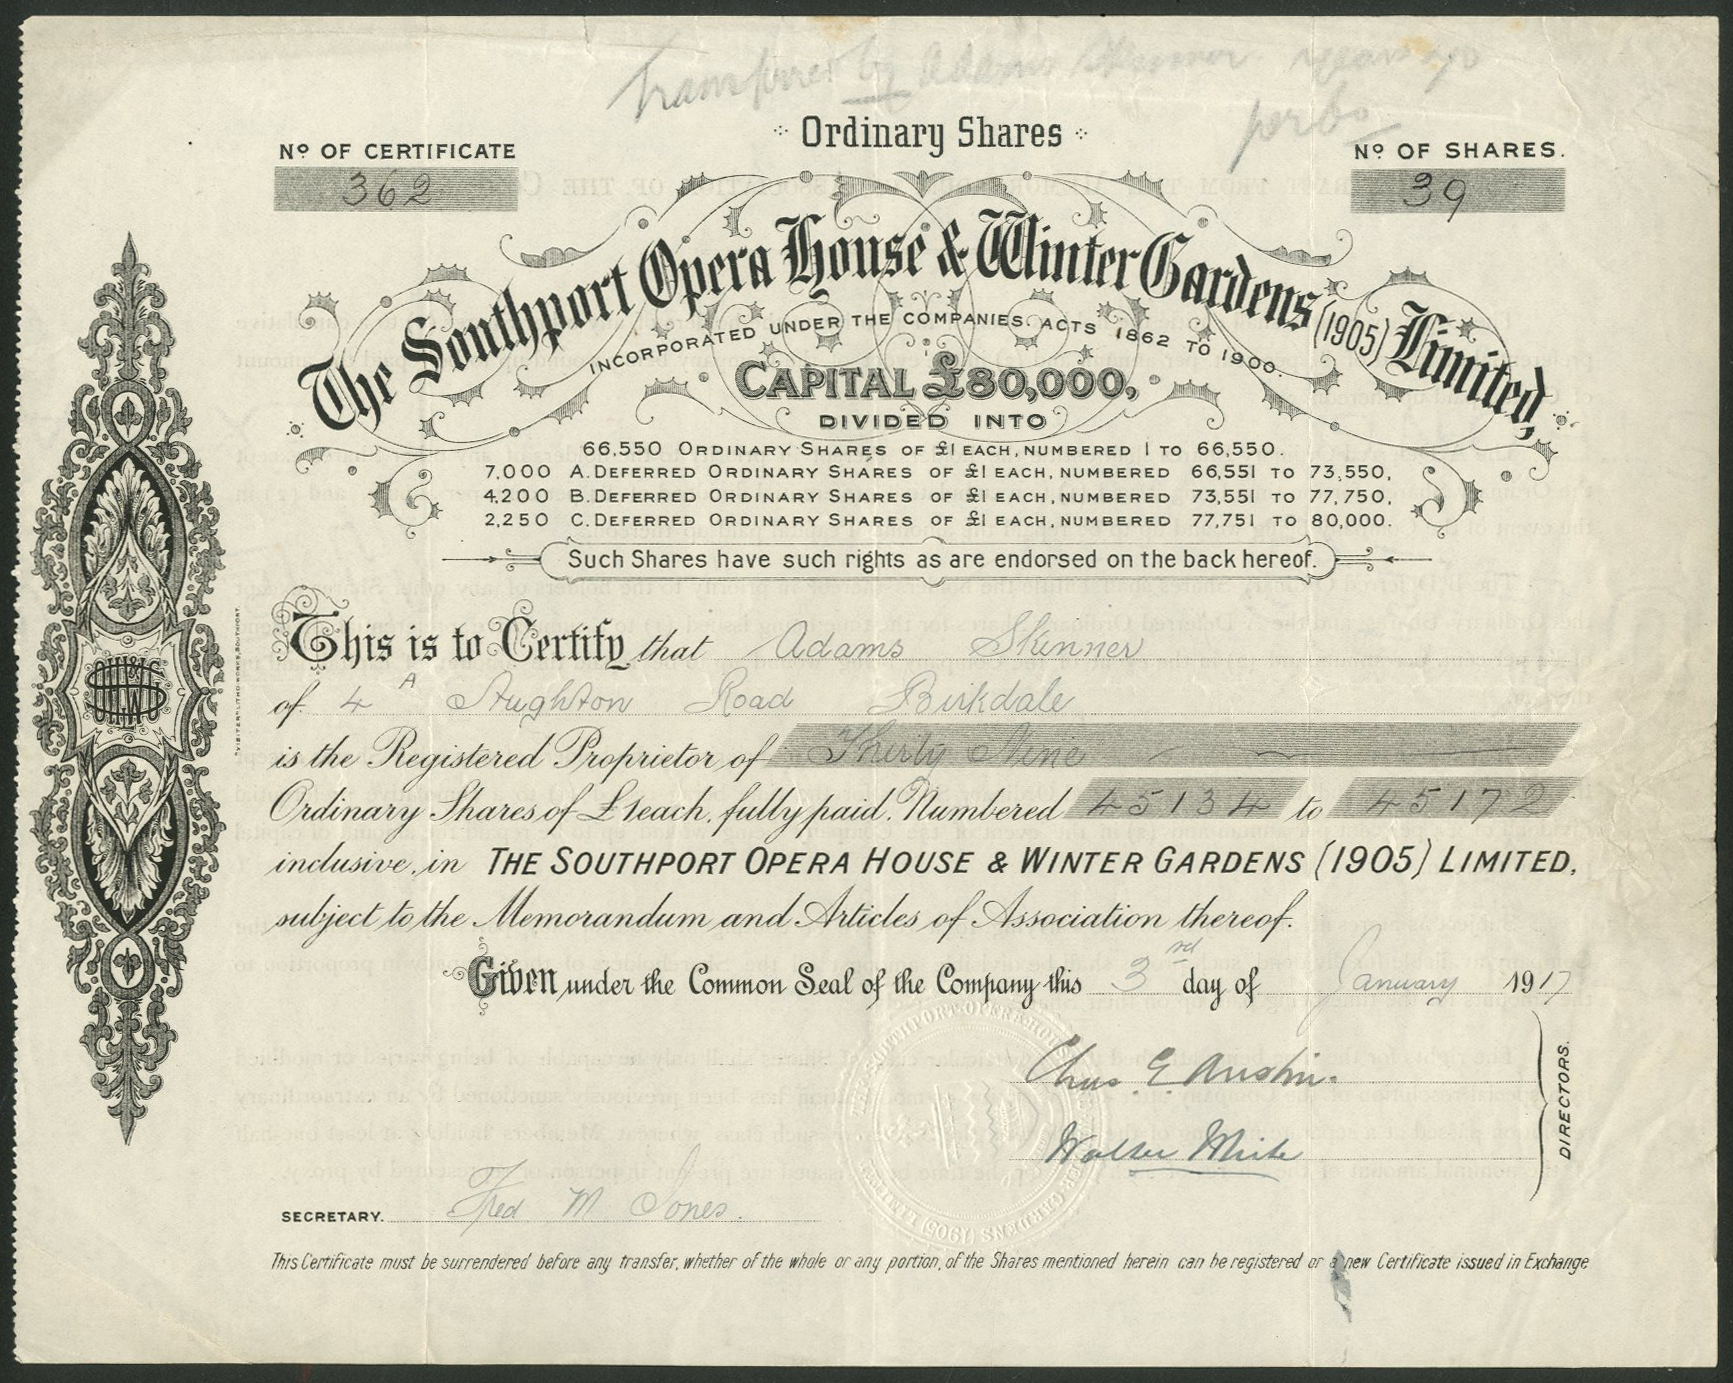 Transferred by Adams Skinner years ago
Ordinary Shares
Nº OF CERTIFICATE
362
Nº OF SHARES.
39
The Southport Opera House & Winter Gardens (1905) Limited,
INCORPORATED UNDER THE COMPANIES ACTS 1862 TO 1900.
CAPITAL £80,000,
DIVIDED INTO
66,550 ORDINARY SHARES OF £1 EACH, NUMBERED 1 TO 66,550.
7,000 A. DEFERRED ORDINARY SHARES OF £1 EACH, NUMBERED 66,551 TO 73,550,
4,200 B. DEFERRED ORDINARY SHARES OF £1 EACH, NUMBERED 73,551 TO 77,750,
2,250 C. DEFERRED ORDINARY SHARES OF £1 EACH, NUMBERED 77,751 TO 80,000.
Such Shares have such rights as are endorsed on the back hereof.
This is to Certify that Adams Skinner
of 4A Aughton Road Birkdale
is the Registered Proprietor of Thirty Nine
Ordinary Shares of £1 each, fully paid, Numbered 45134 to 45172
inclusive, in THE SOUTHPORT OPERA HOUSE & WINTER GARDENS (1905) LIMITED,
subject to the Memorandum and Articles of Association thereof.
Given under the Common Seal of the Company this 3rd day of January 1917
Chas E Austin.
Walter White
DIRECTORS.
SECRETARY. Fred M Jones.
This Certificate must be surrendered before any transfer, whether of the whole or any portion, of the Shares mentioned herein can be registered or a new Certificate issued in Exchange